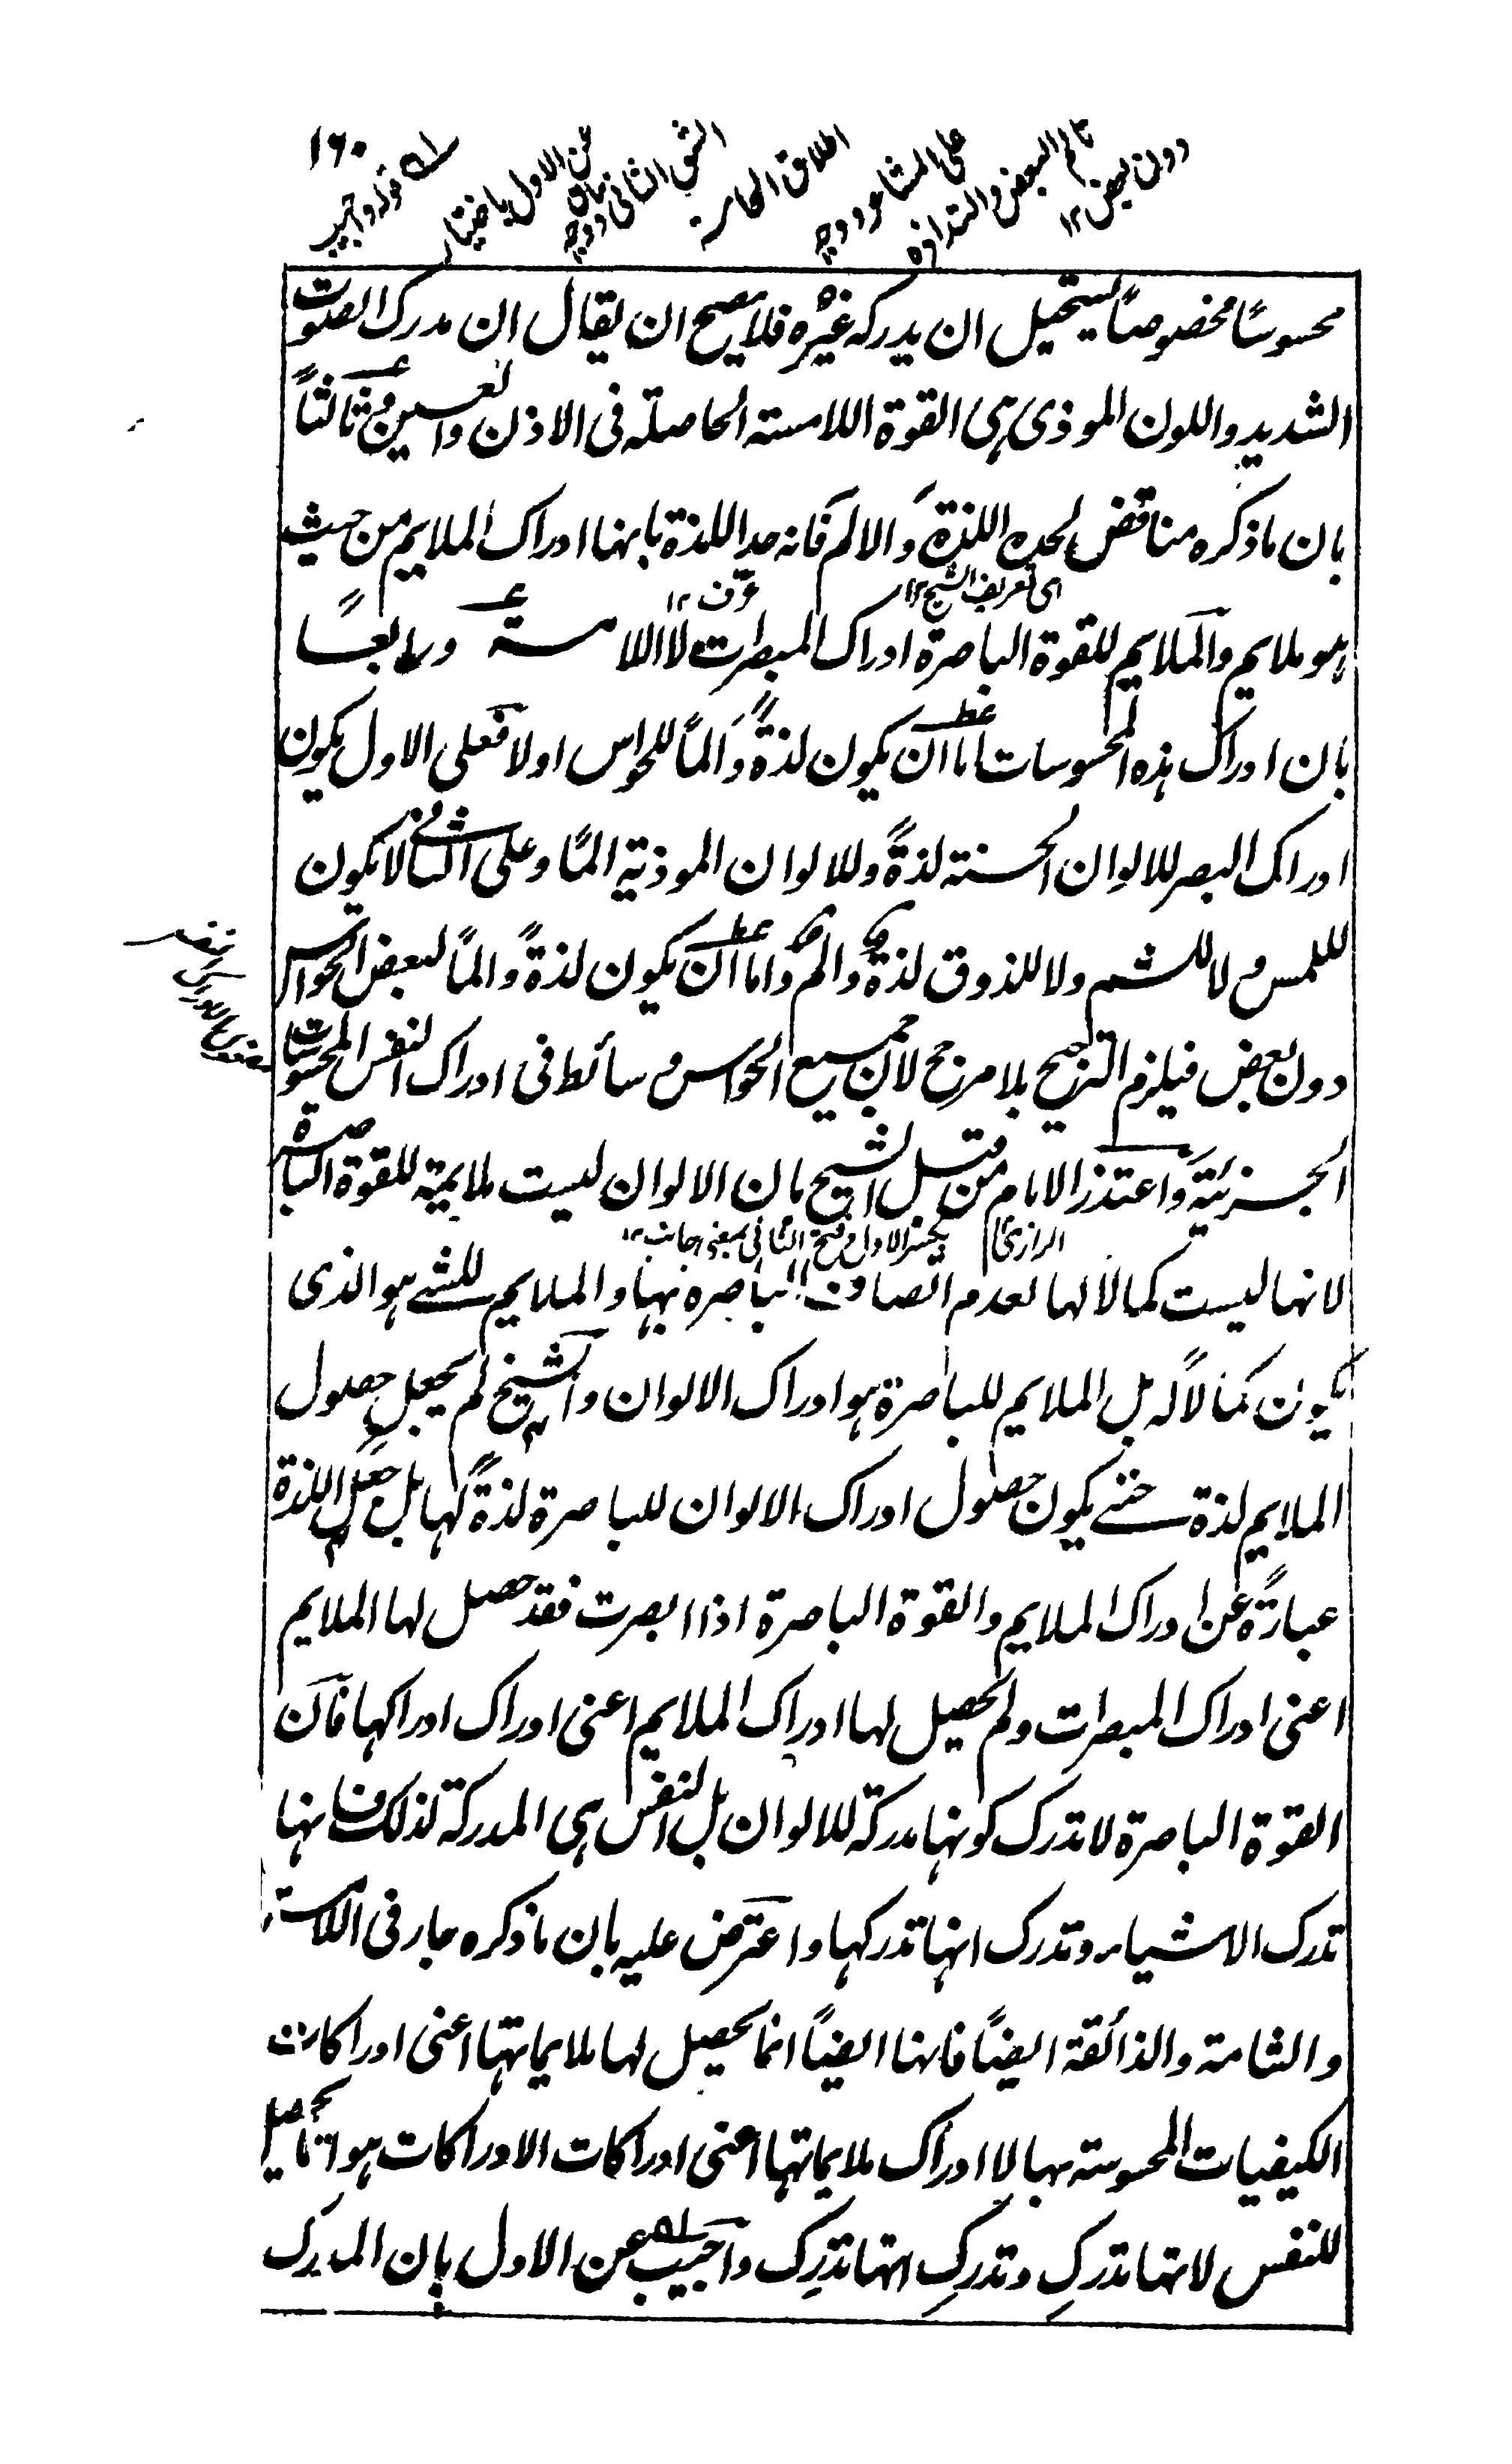 ١٦٠
محسوسًا مخصوصًا يستحيل ان يدركه غيره فلا يصح ان يقال ان مدرك الصوت
الشديد واللون الموذى هى القوة اللامسته الحاصلة فى الاذن والعين وثالثاً
بان ماذكره مناقض لحده اللذة والالم فانه حد اللذة بانها ادراك الملايم من حيث
اى تعريف الشيخ ١٢ عرّف ١٢
هو ملايم والملايم للقوة الباصرة ادراك المبصرات لا اللامسة ورابعًا
بان ادراك هذه المحسوسات اما ان يكون لذةً والماً للحواس اولا فعلى الاول يكون
ادراك البصر للالوان الحسنة لذةً وللالوان الموذية المًا وعلى الثانى لا يكون
للمس ولا للشم ولا للذوق لذة والم واما ان يكون لذةً والماً لبعض الحواس
دون بعض فيلزم الترجيح بلا مرجح لان جميع الحواس وسائط فى ادراك النفس المحسوسات
الجزئية واعتذر الامام من قبل الشيخ بان الالوان ليست ملايمة للقوة الباصرة
الرازى بكسر الاول وفتح الثانى بمعنى جانب ١٢
لانها ليست كمالا لها لعدم اتصاف الباصرة بها والملايم للشے هو الذى
يكون كمالاً له بل الملايم للباصرة هو ادراك الالوان والشيخ لم يجعل حصول
الملايم لذة حتے يكون حصول ادراك الالوان للباصرة لذةً لها بل جعل اللذة
عبارةً عن ادراك الملايم والقوة الباصرة اذا ابصرت فقد حصل لها الملايم
اعنى ادراك المبصرات ولم يحصل لها ادراك الملايم اعنى ادراك ادراكها فان
القوة الباصرة لا تدرك كونها مدركة للالوان بل النفس هى المدركة لذلك فانها
تدرك الاشياء وتدرك انها تدركها واعترض عليه بان ماذكره جار فى اللامسة
والشامة والذائقة ايضاً فانها ايضاً انما يحصل لها ملايماتها اعنى ادراكات
الكيفيات المحسوسة بها لا ادراك ملايماتها اعنى ادراكات الادراكات هو انما يحصل
للنفس لانها تدرك وتدرك انها تدرك واجيب عن الاول بان المدرك